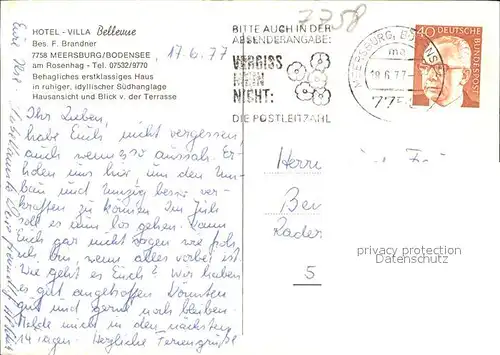 HOTEL - VILLA Bellevue
Bes. F. Brandner
7758 MEERSBURG/BODENSEE
am Rosenhag - Tel. 07532/9770
Behagliches erstklassiges Haus
in ruhiger, idyllischer Südhanglage
Hausansicht und Blick v. der Terrasse
17.6.77
7758
BITTE AUCH IN DER
ABSENDERANGABE:
VERGISS
MEIN
NICHT:
DIE POSTLEITZAHL
MEERSBURG, BODENSEE
18.6.77
7758
40
DEUTSCHE
BUNDESPOST
Ihr Lieben,
habe Euch nicht vergessen,
auch wenn es so aussah. Er-
holen uns hier, um den Um-
bau und Umzug besser ver-
kraften zu können. Im Juli
soll es nun los gehen. Kann
Euch gar nicht sagen wie froh
ich bin, wenn alles vorbei ist.
Wie geht es Euch? Wir haben
es gut angetroffen. Könnten
gut und gerne noch bleiben.
Melde mich in den nächsten
14 Tagen. Herzliche Feriengrüße
Eure
Herrn
5
copyright protected
Datenschutz